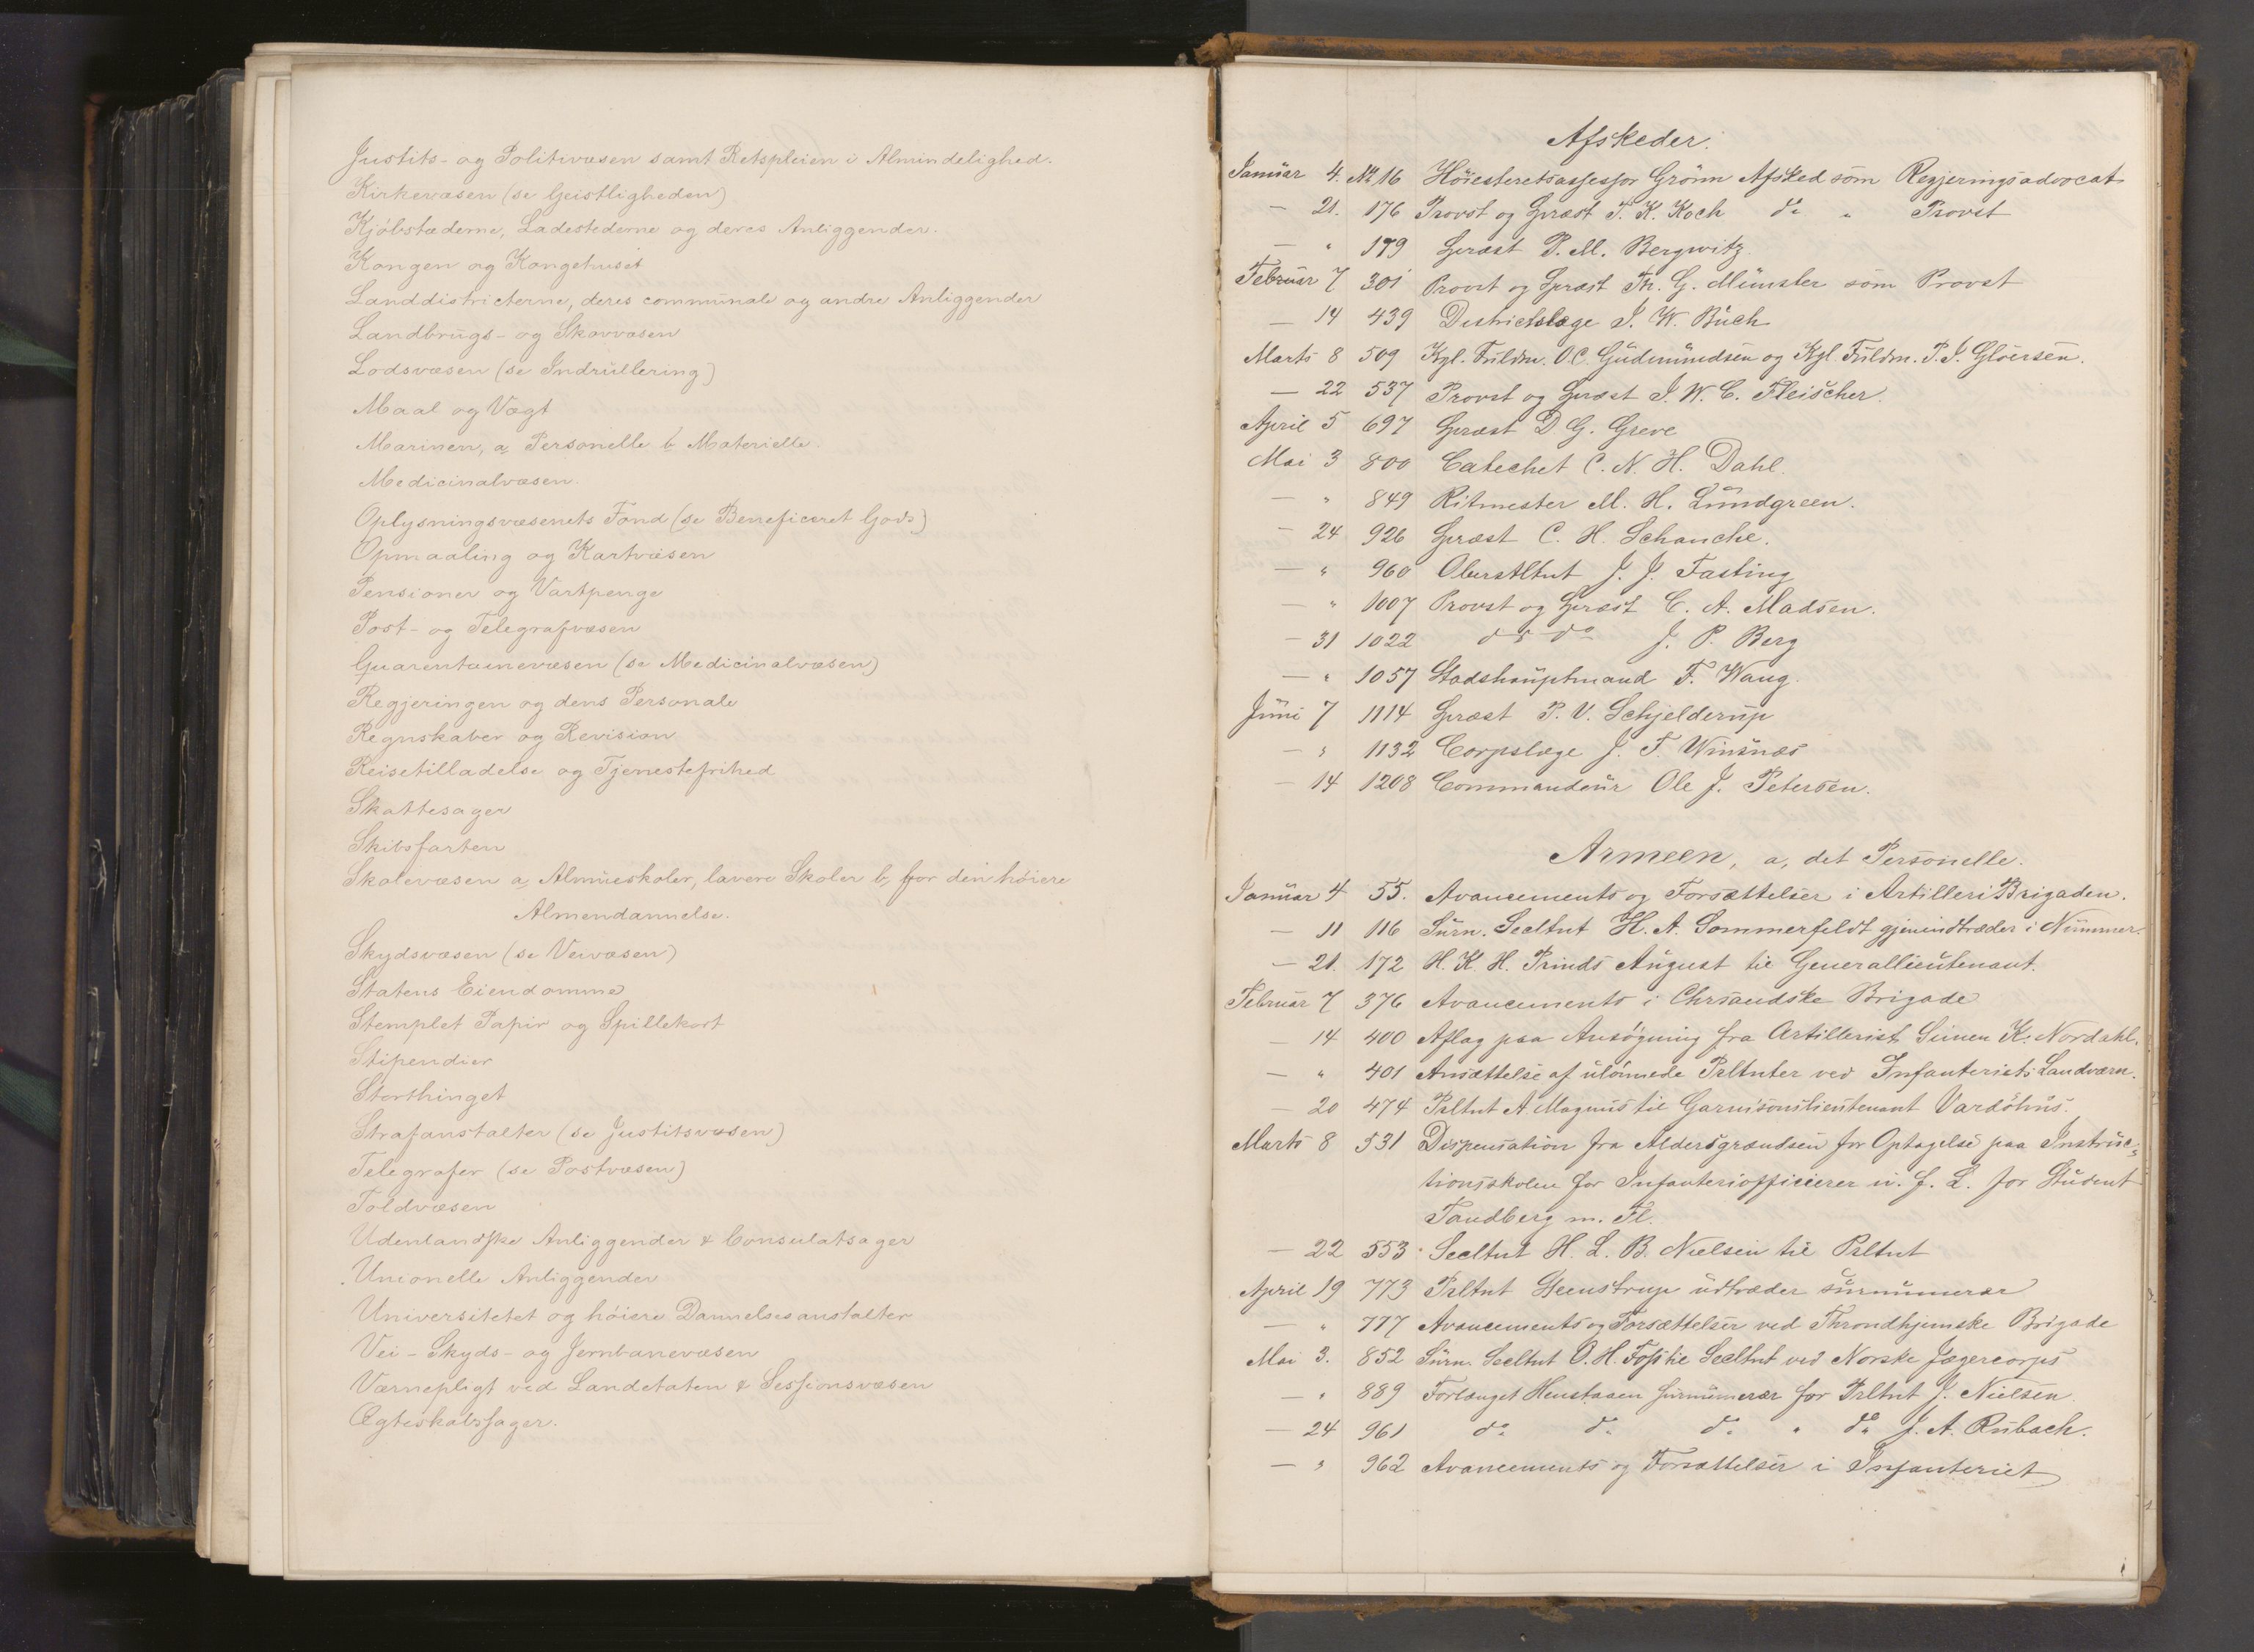 Justits- og Politivæsen samt Retspleien i Almindelighed.
Kirkevæsen (se Geistligheden)
Kjöbstæderne, Ladestederne og deres Anliggender.
Kongen og Kongehuset
Landdistricterne, deres communale og andre Anliggender
Landbrugs- og Skovvæsen
Lodsvæsen (se Indrullering)
Maal og Vægt
Marinen, a, Personelle b, Materielle.
Medicinalvæsen.
Oplysningsvæsenets Fond (se Beneficeret Gods)
Opmaaling og Kartvæsen
Pensioner og Vartpenge
Post- og Telegrafvæsen
Quarentainevæsen (se Medicinalvæsen)
Regjeringen og dens Personale
Regnskaber og Revision
Reisetilladelse og Tjenestefrihed
Skattesager
Skibsfarten
Skolevæsen a, Almueskoler, lavere Skoler b, for den höiere
Almendannelse.
Skydsvæsen (se Veivæsen)
Statens Eiendomme
Stemplet Papir og Spillekort
Stipendier
Storthinget
Strafanstalter (se Justitsvæsen)
Telegrafer (se Postvæsen)
Toldvæsen
Udenlandske Anliggender & Consulatsager
Unionelle Anliggender
Universitetet og höiere Dannelsesanstalter
Vei- Skyds- og Jernbanevæsen
Værnepligt ved Landetaten & Sessionsvæsen
Ægteskabssager.
Afskeder.
Januar 4. No 16 Höiesteretsassessor Grönn Afsked som Regjeringsadvocat
— 21. 176 Provst og Spræst T. K. Koch do " Provst
— " 179 Spræst P. M. Bergwitz
Februar 7 301 Provst og Spræst Th. G. Münster som Provst
— 14 439 Districtslæge J. W. Buch
Marts 8 509 Kgl. Fuldm. O. C. Gudmundsen og Kgl. Fuldm. P. J. Glöersen.
— 22 537 Provst og Spræst J. W. C. Fleischer.
April 5 697 Spræst D G. Greve
Mai 3 800 Catechet C. N. H. Dahl.
— " 849 Ritmester M. H. Lundgreen.
— 24 926 Spræst C. H. Schanche.
— " 960 Oberstltnt J. J. Fasting
— " 1007 Provst og Spræst C. A. Madsen.
— 31 1022 do do J. P. Berg
— " 1057 Stadshauptmand F. Waug.
Juni 7 1114 Spræst P. V. Schjelderup
— " 1132 Corpslæge J. F. Winsnæs
— 14 1208 Commandeur Ole J. Petersen.
Armeen, a, det Personelle.
Januar 4 55. Avancements og Forsættelser i Artilleri Brigaden.
— 11 116 Surn. Secltnt H. A. Sommerfeldt gjenindtræder i Nummer.
— 21. 172 H. K. H. Prinds August til Generallieutenant.
Februar 7 376 Avancements i Chrsandske Brigade
— 14 400 Aflag paa Ansögning fra Artillerist Simen K. Nordahl.
— " 401 Ansættelse af ulönnede Prltnter ved Infanteriets Landværn.
— 20 474 Prltnt A Magnus til Garnisonslieutenant Vardöhus.
Marts 8 531 Dispensation fra Aldersgrændsen for Optagelse paa Instruc-
tionsskolen for Infanteriofficierer n. f. L. for Student
Tandberg m. Fl.
— 22 553 Secltnt H. L. B. Nielsen til Prltnt
April 19 773 Prltnt Steenstrup udtræder surnumerær
— " 777 Avancements og Forsættelser ved Throndhjemske Brigade
Mai 3. 852 Surn. Secltnt O. H. Foss til Secltnt ved Norske Jægercorps
— " 889 Forlænget Henstaaen surnumerær for Prltnt J. Nielsen.
— 24 961 do do do " do J. A. Rubach.
— " 962 Avancements og Forsættelser i Infanteriet